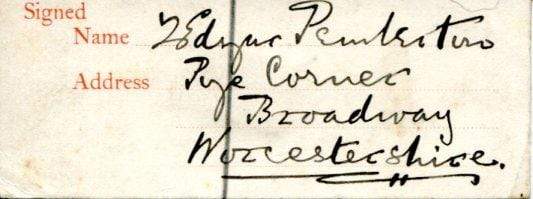 Signed
Name T Edgar Pemberton
Address Pye Corner
Broadway
Worcestershire.